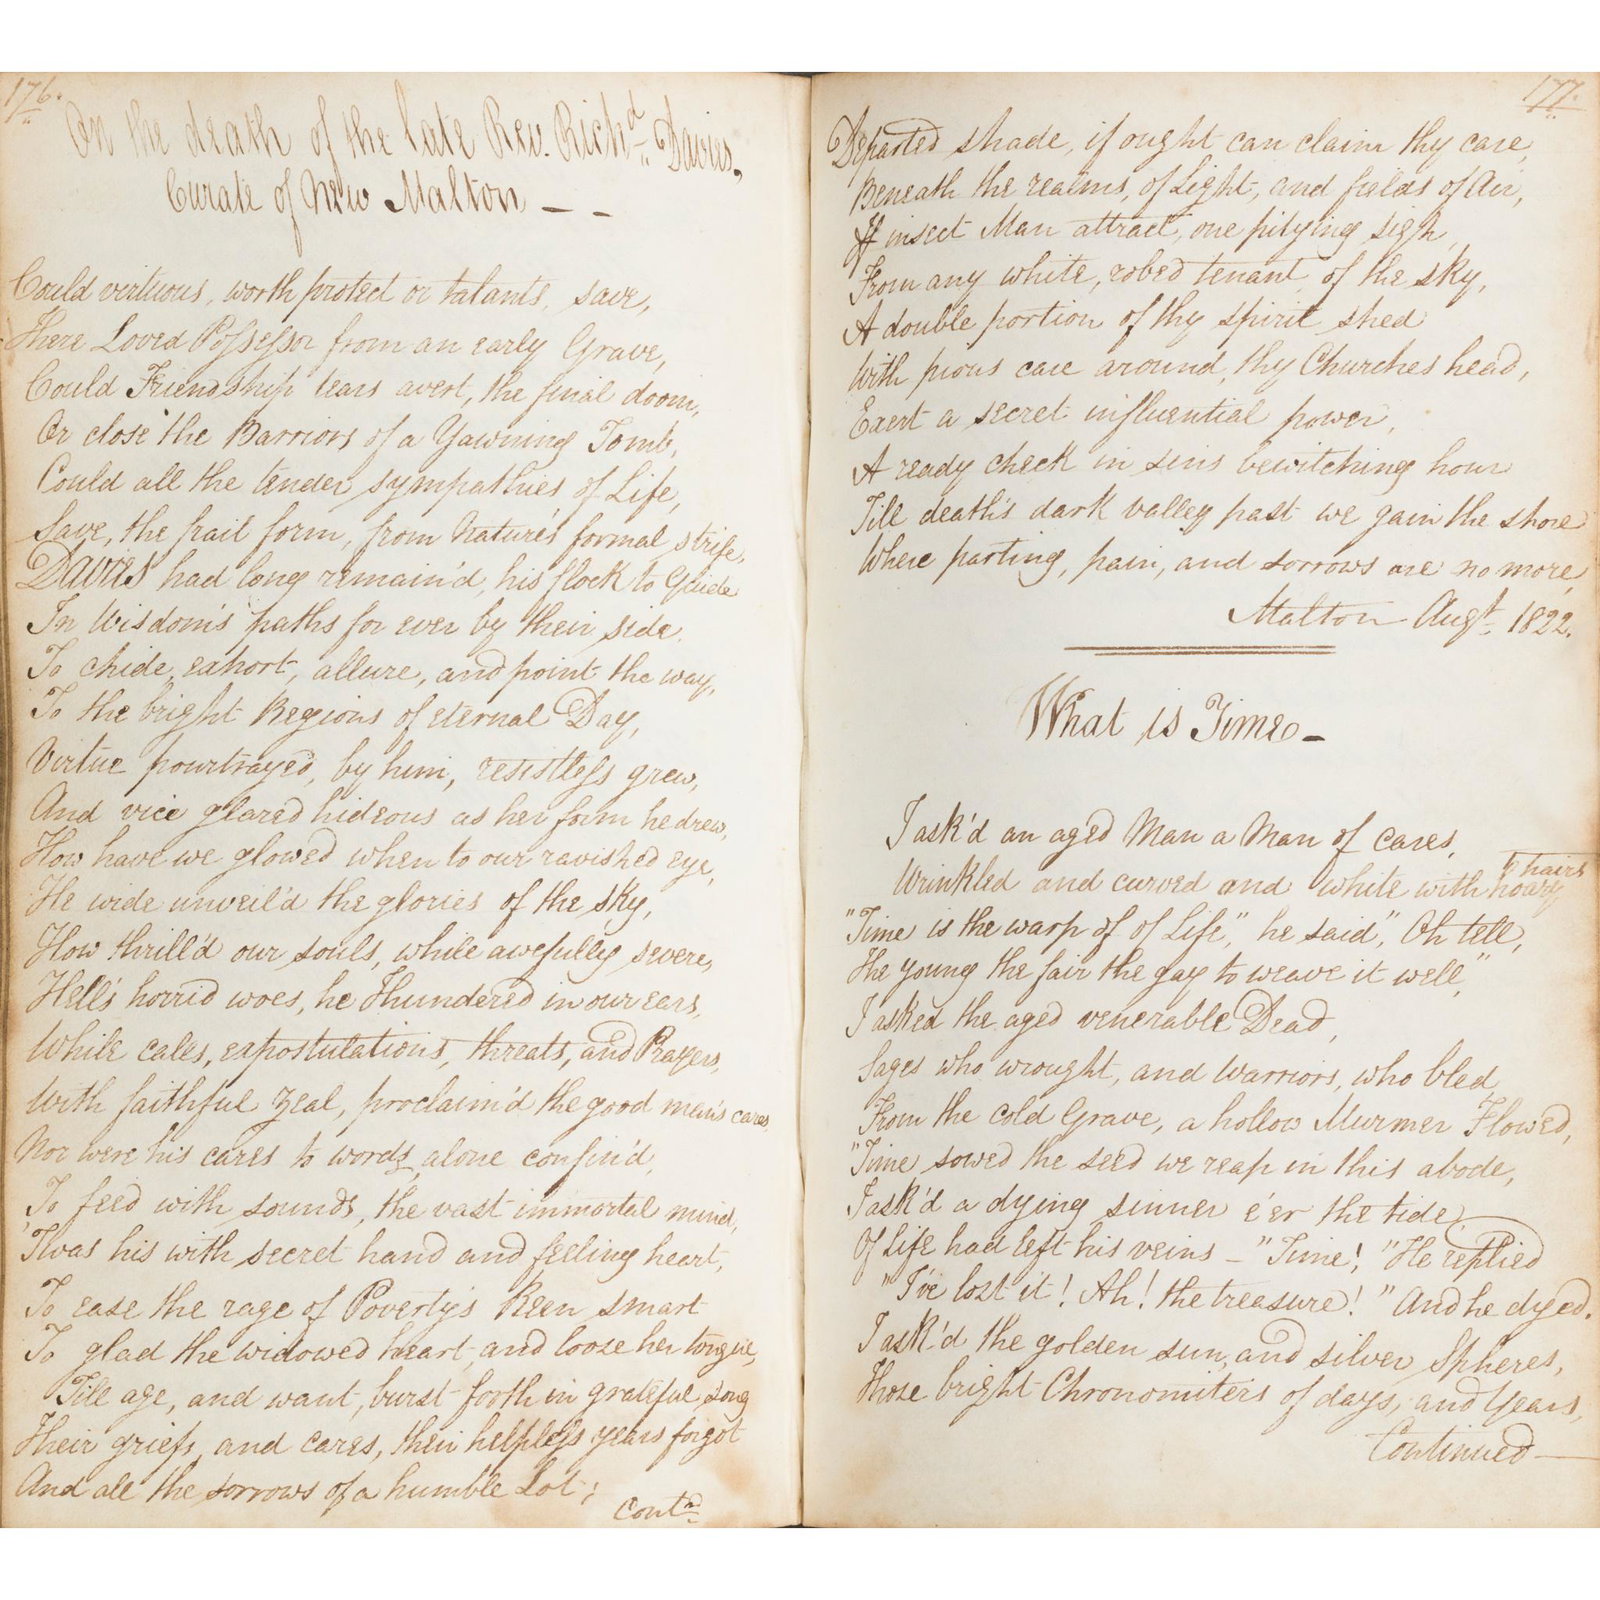 176.
On the death of the late Rev. Richd. Davies,
Curate of New Malton — –
Could virtuous, worth protect or talants, save,
There Loved Possessor from an early Grave,
Could Friendship tears avert, the final doom,
Or close the Barriors of a Yawning Tomb,
Could all the tender sympathies of Life,
Save, the frail form, from Nature's formal strife,
DAVIES had long remain'd, his flock to Guide
In Wisdom's paths for ever by their side.
To chide, exhort, allure, and point the way,
To the bright Regions of eternal Day,
Virtue pourtrayed, by him, resistless grew,
And vice glared hideous as her form he drew,
How have we glowed when to our ravished eye,
He wide unveil'd the glories of the sky,
How thrill'd our souls, while awefully severe,
Hell's horrid woes, he Thundered in our ears,
While cales, expostulations, threats, and Prayers,
With faithful zeal, proclaim'd the good men's cares
Nor were his cares to words, alone confin'd,
To feed with sounds, the vast immortal mind,
'Twas his with secret hand and feeling heart,
To ease the rage of Poverty's Keen smart
To glad the widowed heart, and loose her tongue,
Till age, and want, burst forth in grateful song
Their griefs, and cares, their helpless years forgot
And all the sorrows of a humble Lot;
Contd
177.
Departed shade, if ought can claim thy care,
Beneath the realms, of Light, and fields of Air,
If insect Man attract, one pitying sigh,
From any white, robed tenant of the sky,
A double portion of thy spirit shed
With pious care around, thy Churches head,
Exert a secret influential power,
A ready check in sins bewitching hour
Till death's dark valley past we gain the shore
Where parting, pain, and sorrows are no more,
Malton Augt. 1822.
What is Time –
I ask'd an aged Man a Man of cares,
Wrinkled and curved and white with hoary hairs
"Time is the warp of of Life," he said," Oh tell,
The young the fair the gay to weave it well,"
I asked the aged venerable Dead,
Sages who wrought, and Warriors, who bled,
From the cold Grave, a hollow Murmer Flowed,
"Time sowed the seed we reap in this abode,
I ask'd a dying sinner e'er the tide
Of Life had left his veins – "Time! "He replied
"I've lost it! Ah! the treasure!" And he dyed.
I ask'd the golden sun, and silver Spheres,
Those bright Chronomiters of days, and Years,
Continued —